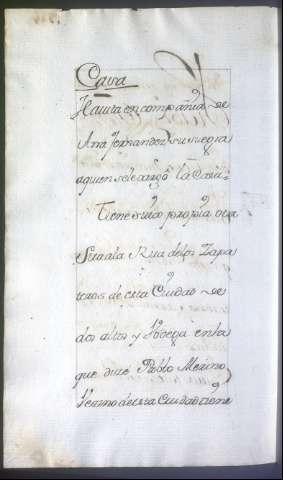 Casa
Havita en compañia de
Ana fernandez su suegra
a quien se le cargó la
Tiene suia propia otra
en la Rua de los Zapa
teros de esta Ciudad de
dos altos y Vodega en la
que dice Pablo Merino
Vecino de esta Ciudad tiene